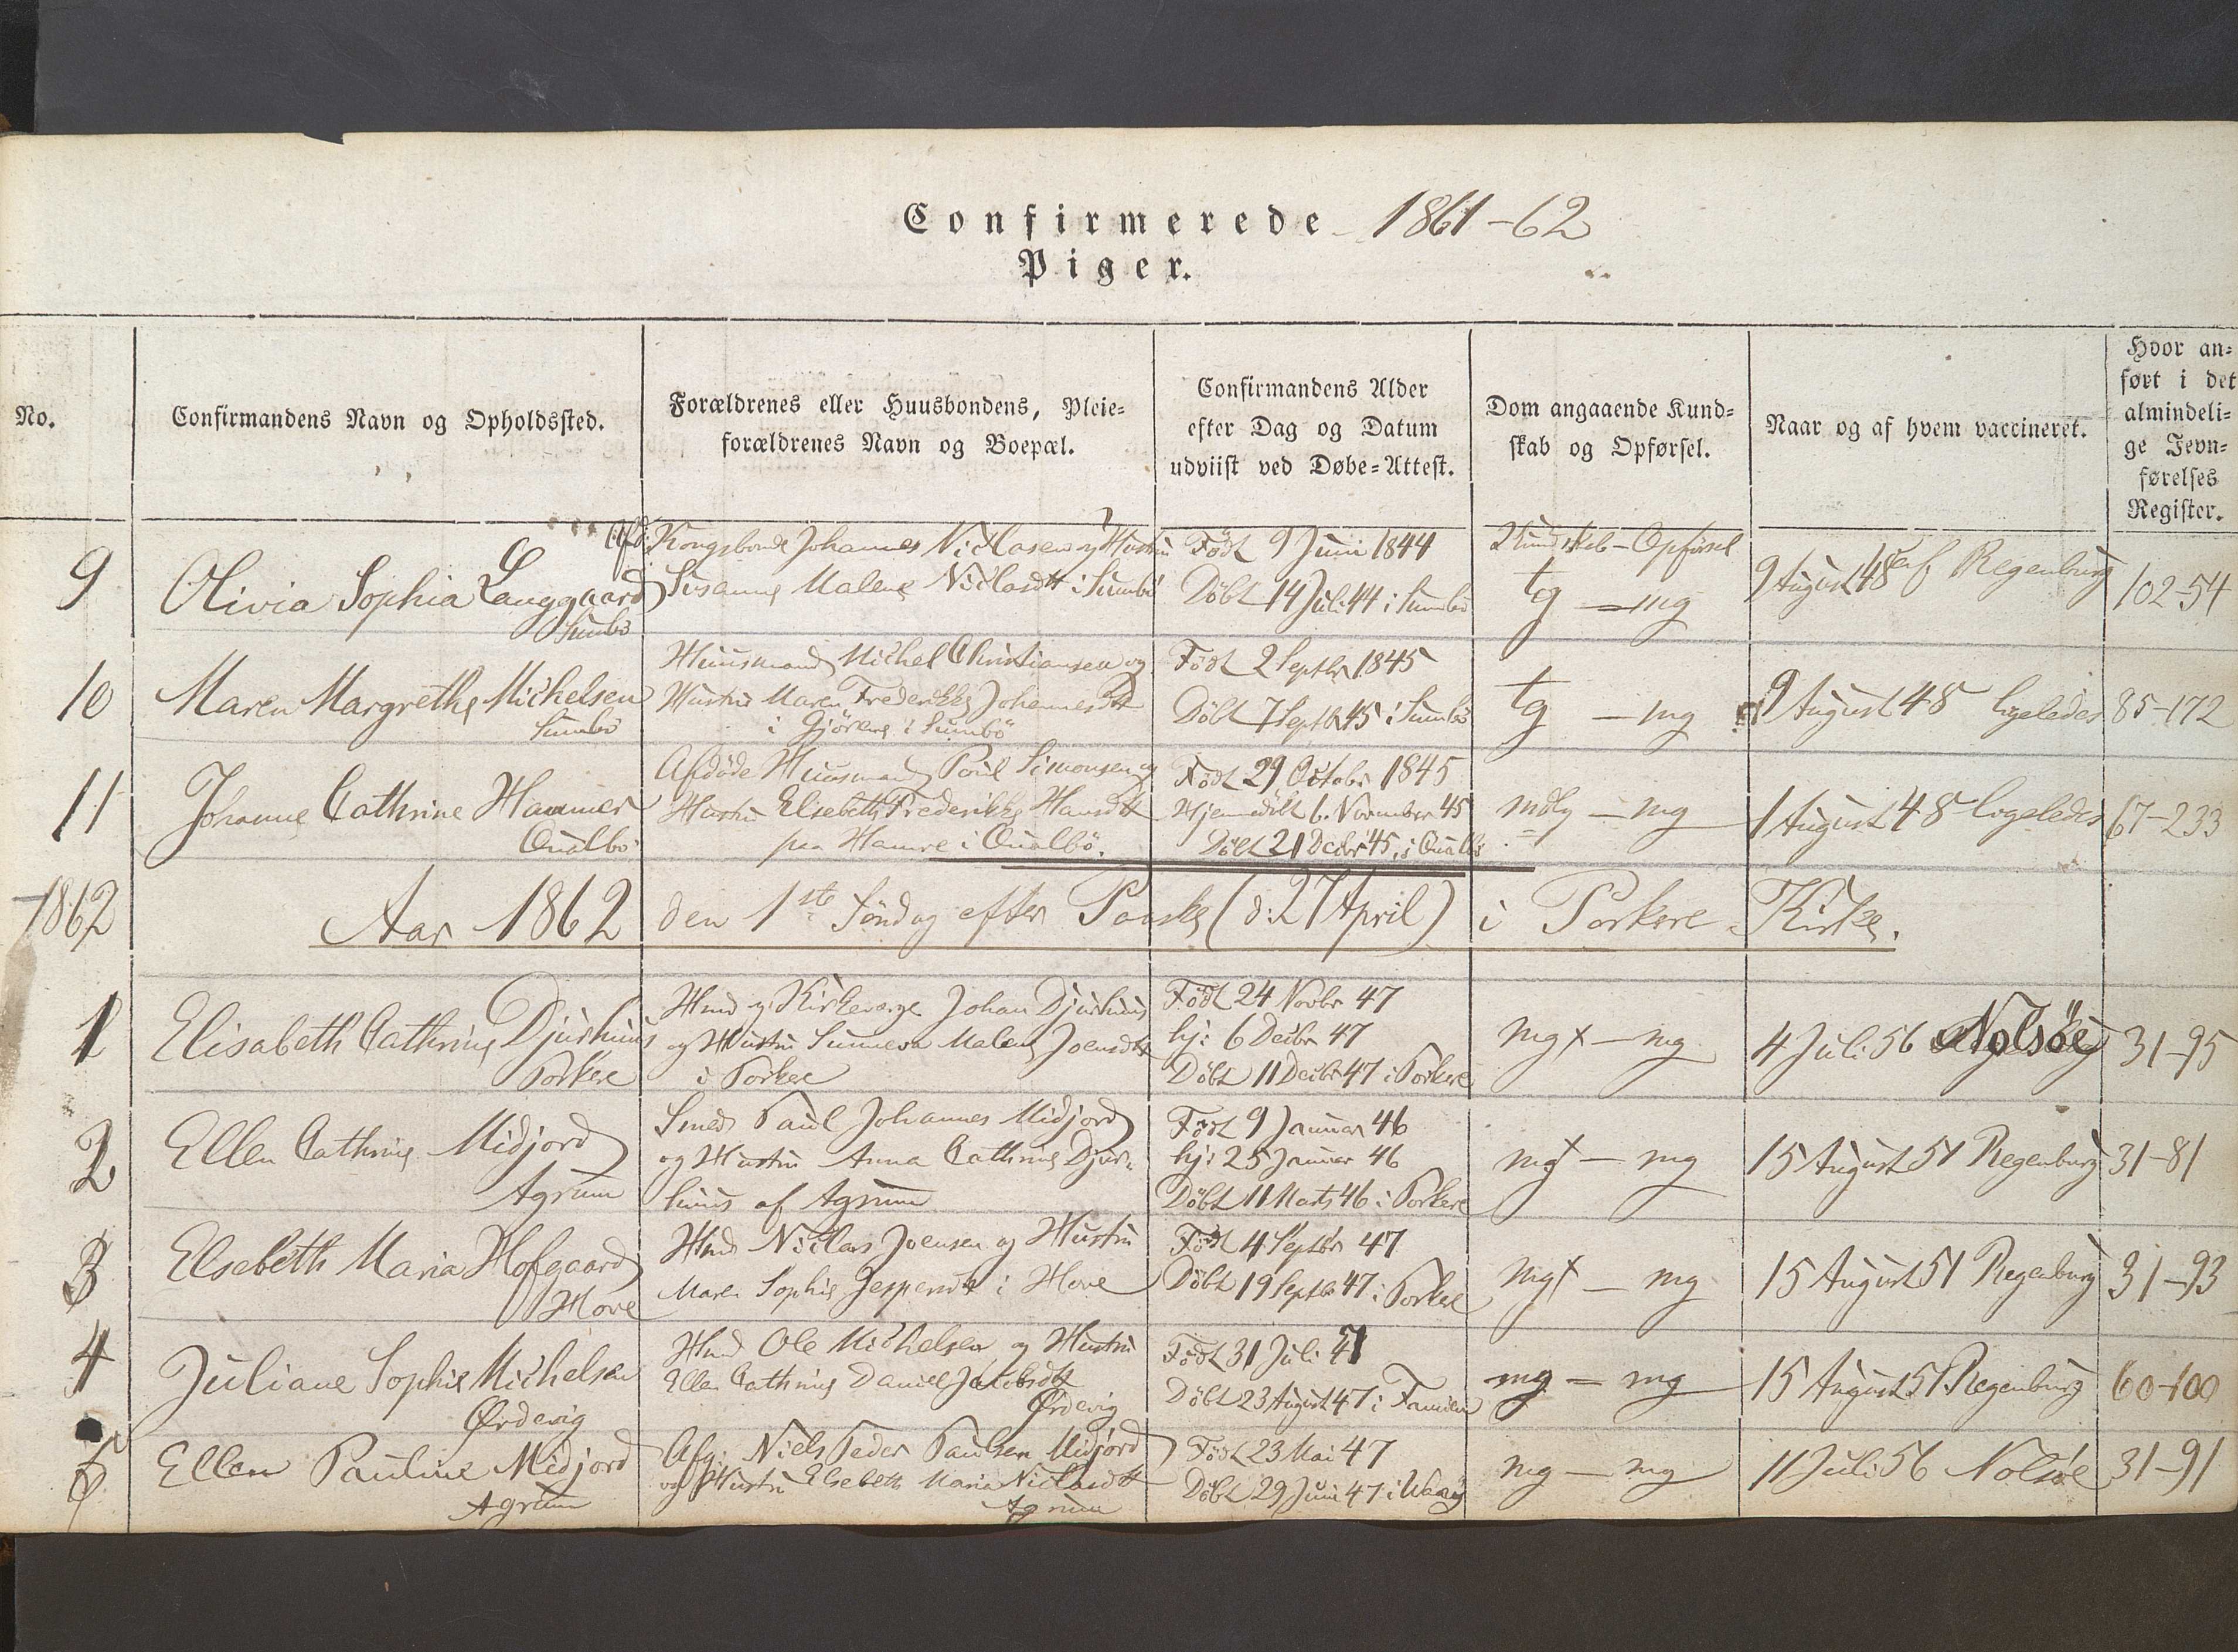 Confirmerede 1861-62
Piger.
No.
Confirmandens Navn og Opholdssted.
Forældrenes eller Huusbondens, Pleie=
forældrenes Navn og Boepæl.
Confirmandens Alder
efter Dag og Datum
udviist ved Døbe=Attest.
Dom angaaende Kund=
skab og Opførsel.
Naar og af hvem vaccineret.
Hvor an=
ført i det
almindeli=
ge Jevn=
førelses
Register.
9
Olivia Sophia Langgaard
Sumbö
Afd: Kongsbonde Johannes Niclasen og Hustru
Susanne Malene Niclasdtt i Sumbö
Födt 9 Juni 1844
Döbt 14 Juli 44 i Sumbö
Kundskab - Opførsel
tg - mg
9 August 48 af Regenburg
102-54
10
Maren Margrethe Michelsen
Sumbö
Huusmand Michel Christiansen og
Hustru Maren Frederikke Johannesdtt
i Gjörene i Sumbö
Födt 2 Septbr 1845
Döbt 7 Septbr 45 i Sumbö
tg - mg
9 August 48 ligeledes
85-172
11
Johanne Cathrine Hammer
Qualbö
Afdöde Huusmand Poul Simonsen og
Hustru Elsebeth Frederikke Hansdtt
paa Hamre i Qualbö.
Födt 29 October 1845
Hjemmedöbt 6. November 45
Döbt 21 Decbr 45, i Qualbö
mdlg - mg
1 August 48 ligeledes
67-233
1862
Aar 1862 den 1ste Söndag efter Paaske (d: 27 April) i Porkere Kirke.
1
Elisabeth Cathrine Djurhuus
Porkere
Hmd og Kirkeværge Johan Djurhuus
og Hustru Sunneva Malene Joensdtt
i Porkere
Födt 24 Novbr 47
hj: 6 Decbr 47
Döbt 11 Decbr 47 i Porkere
mg+ - mg
4 Juli 56 Nolsöe
31-95
2
Ellen Cathrine Midjord
Agrum
Smed Paul Johannes Midjord
og Hustru Anna Cathrine Djur=
huus af Agrum
Födt 9 Januar 46
hj: 25 Januar 46
Döbt 11 Marts 46 i Porkere
mg+ - mg
15 August 51 Regenburg
31-81
3
Elsebeth Maria Hofgaard
Hove
Hmd Niclas Joensen og Hustru
Maren Sophie Jespersdtt i Hove
Födt 4 Septbr 47
Döbt 19 Septbr 47 i Porkere
mg+ - mg
15 August 51 Regenburg
31-93
4
Juliane Sophie Michelsen
Ørdevig
Hmd Ole Michelsen og Hustru
Ellen Cathrine Daniel Jakobsdtt
Ørdevig
Födt 31 Juli 47
Döbt 23 August 47 i Famien
mg - mg
15 August 51 Regenburg
60-100
5
Ellen Pauline Midjord
Agrum
Afg. Niels Peder Paulsen Midjord
og Hustru Elsebeth Maria Niclasdtt
Agrum
Födt 23 Mai 47
Döbt 29 Juni 47 i Waag
mg - mg
11 Juli 56 Nolsöe
31-91